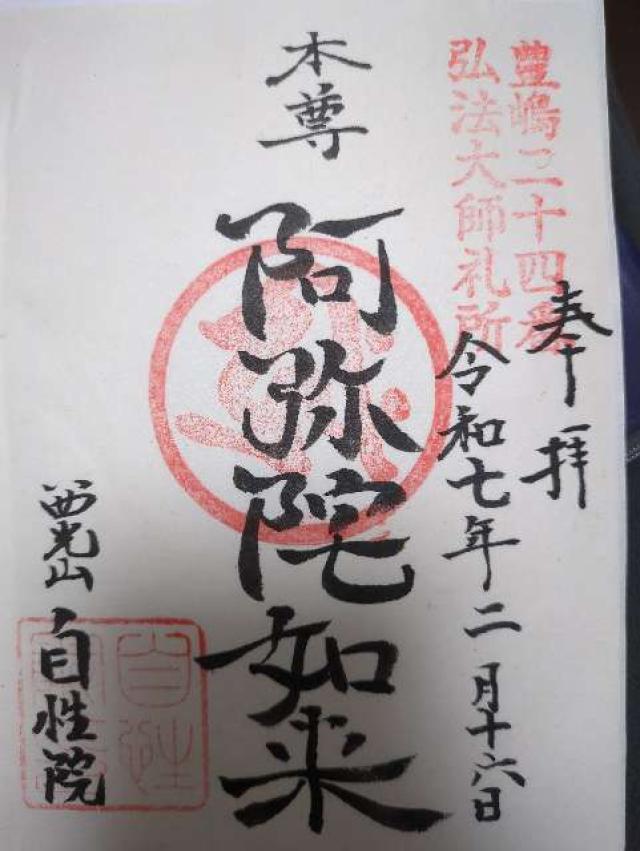 豊嶋二十四番
弘法大師礼所
奉拝
令和七年二月十六日
本尊
阿弥陀如来
西光山
自性院